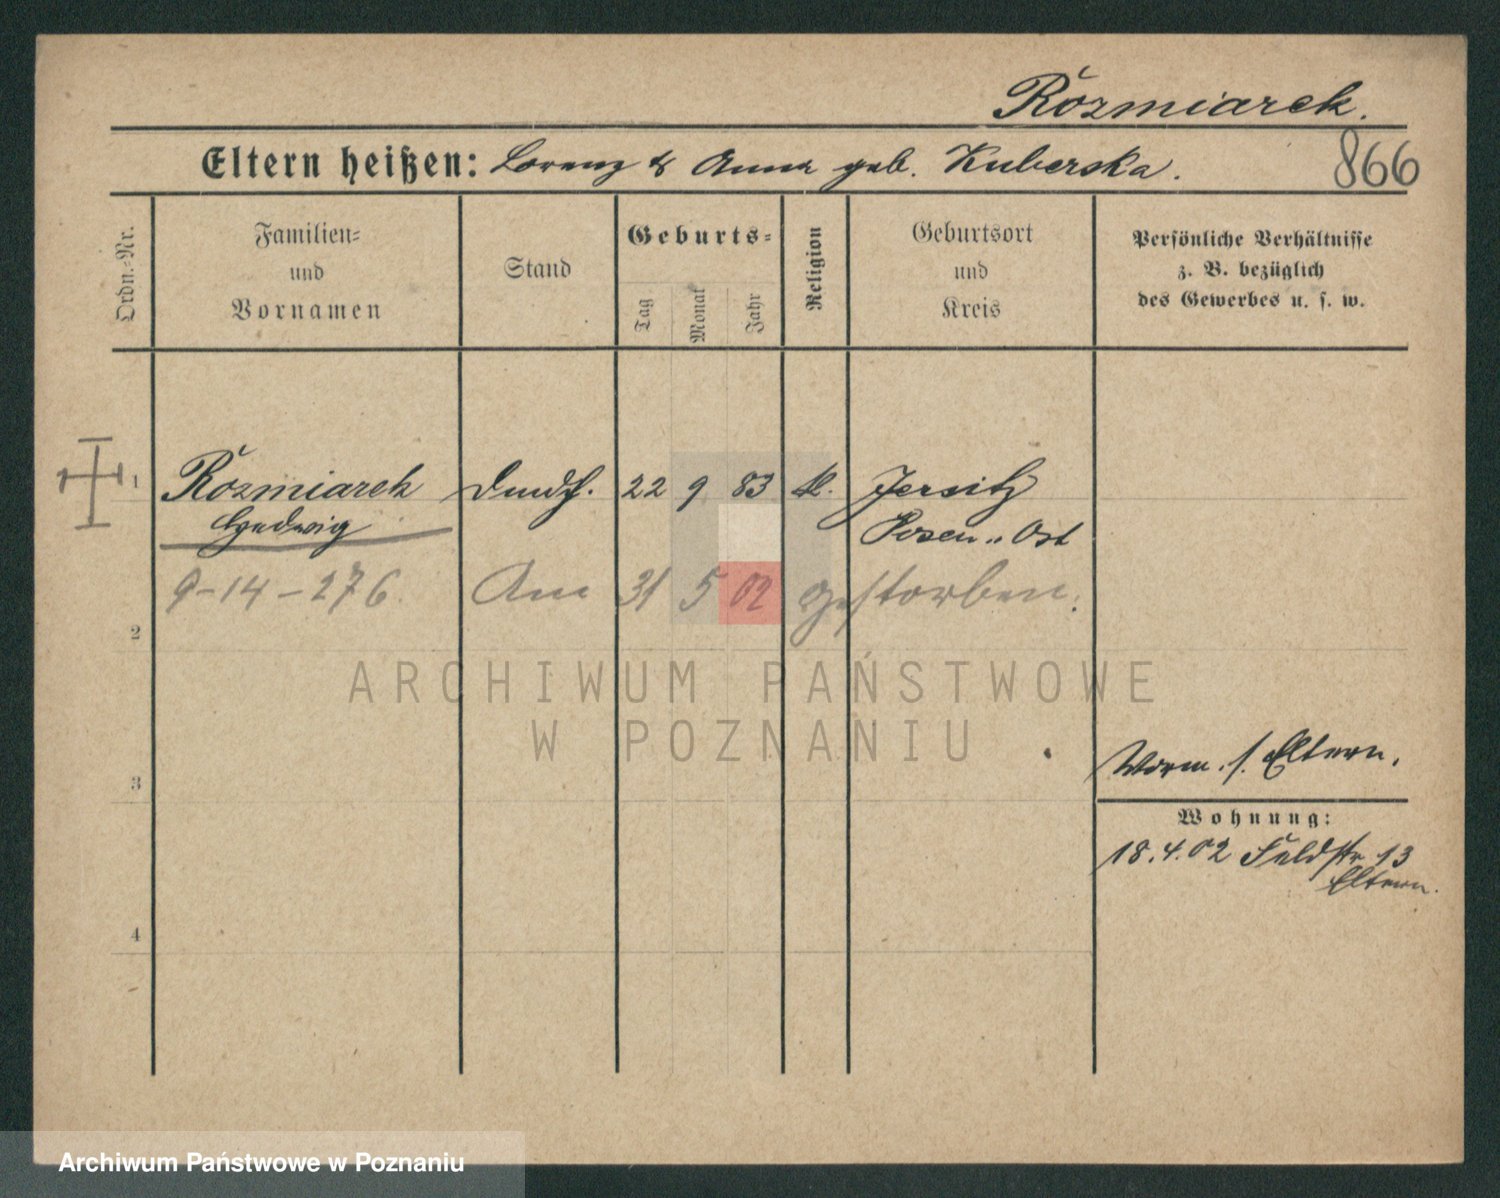 Rozmiarek.
Eltern heißen: Lorenz & Anna geb. Kuberska.
866
Ordn.-Nr.
Familien- und Vornamen
Stand
Geburts-
Tag
Monat
Jahr
Religion
Geburtsort und Kreis
Persönliche Verhältnisse z. B. bezüglich des Gewerbes u. s. w.
1 Rozmiarek 22 9 83 k. Jersitz
Hedwig Posen Ost
9-14-276. Am 31 5 02 gestorben.
2
ARCHIWUM PAŃSTWOWE
W POZNANIU
3
Eltern.
Wohnung:
18.4.02 Feldstr 13
Eltern.
4
Archiwum Państwowe w Poznaniu